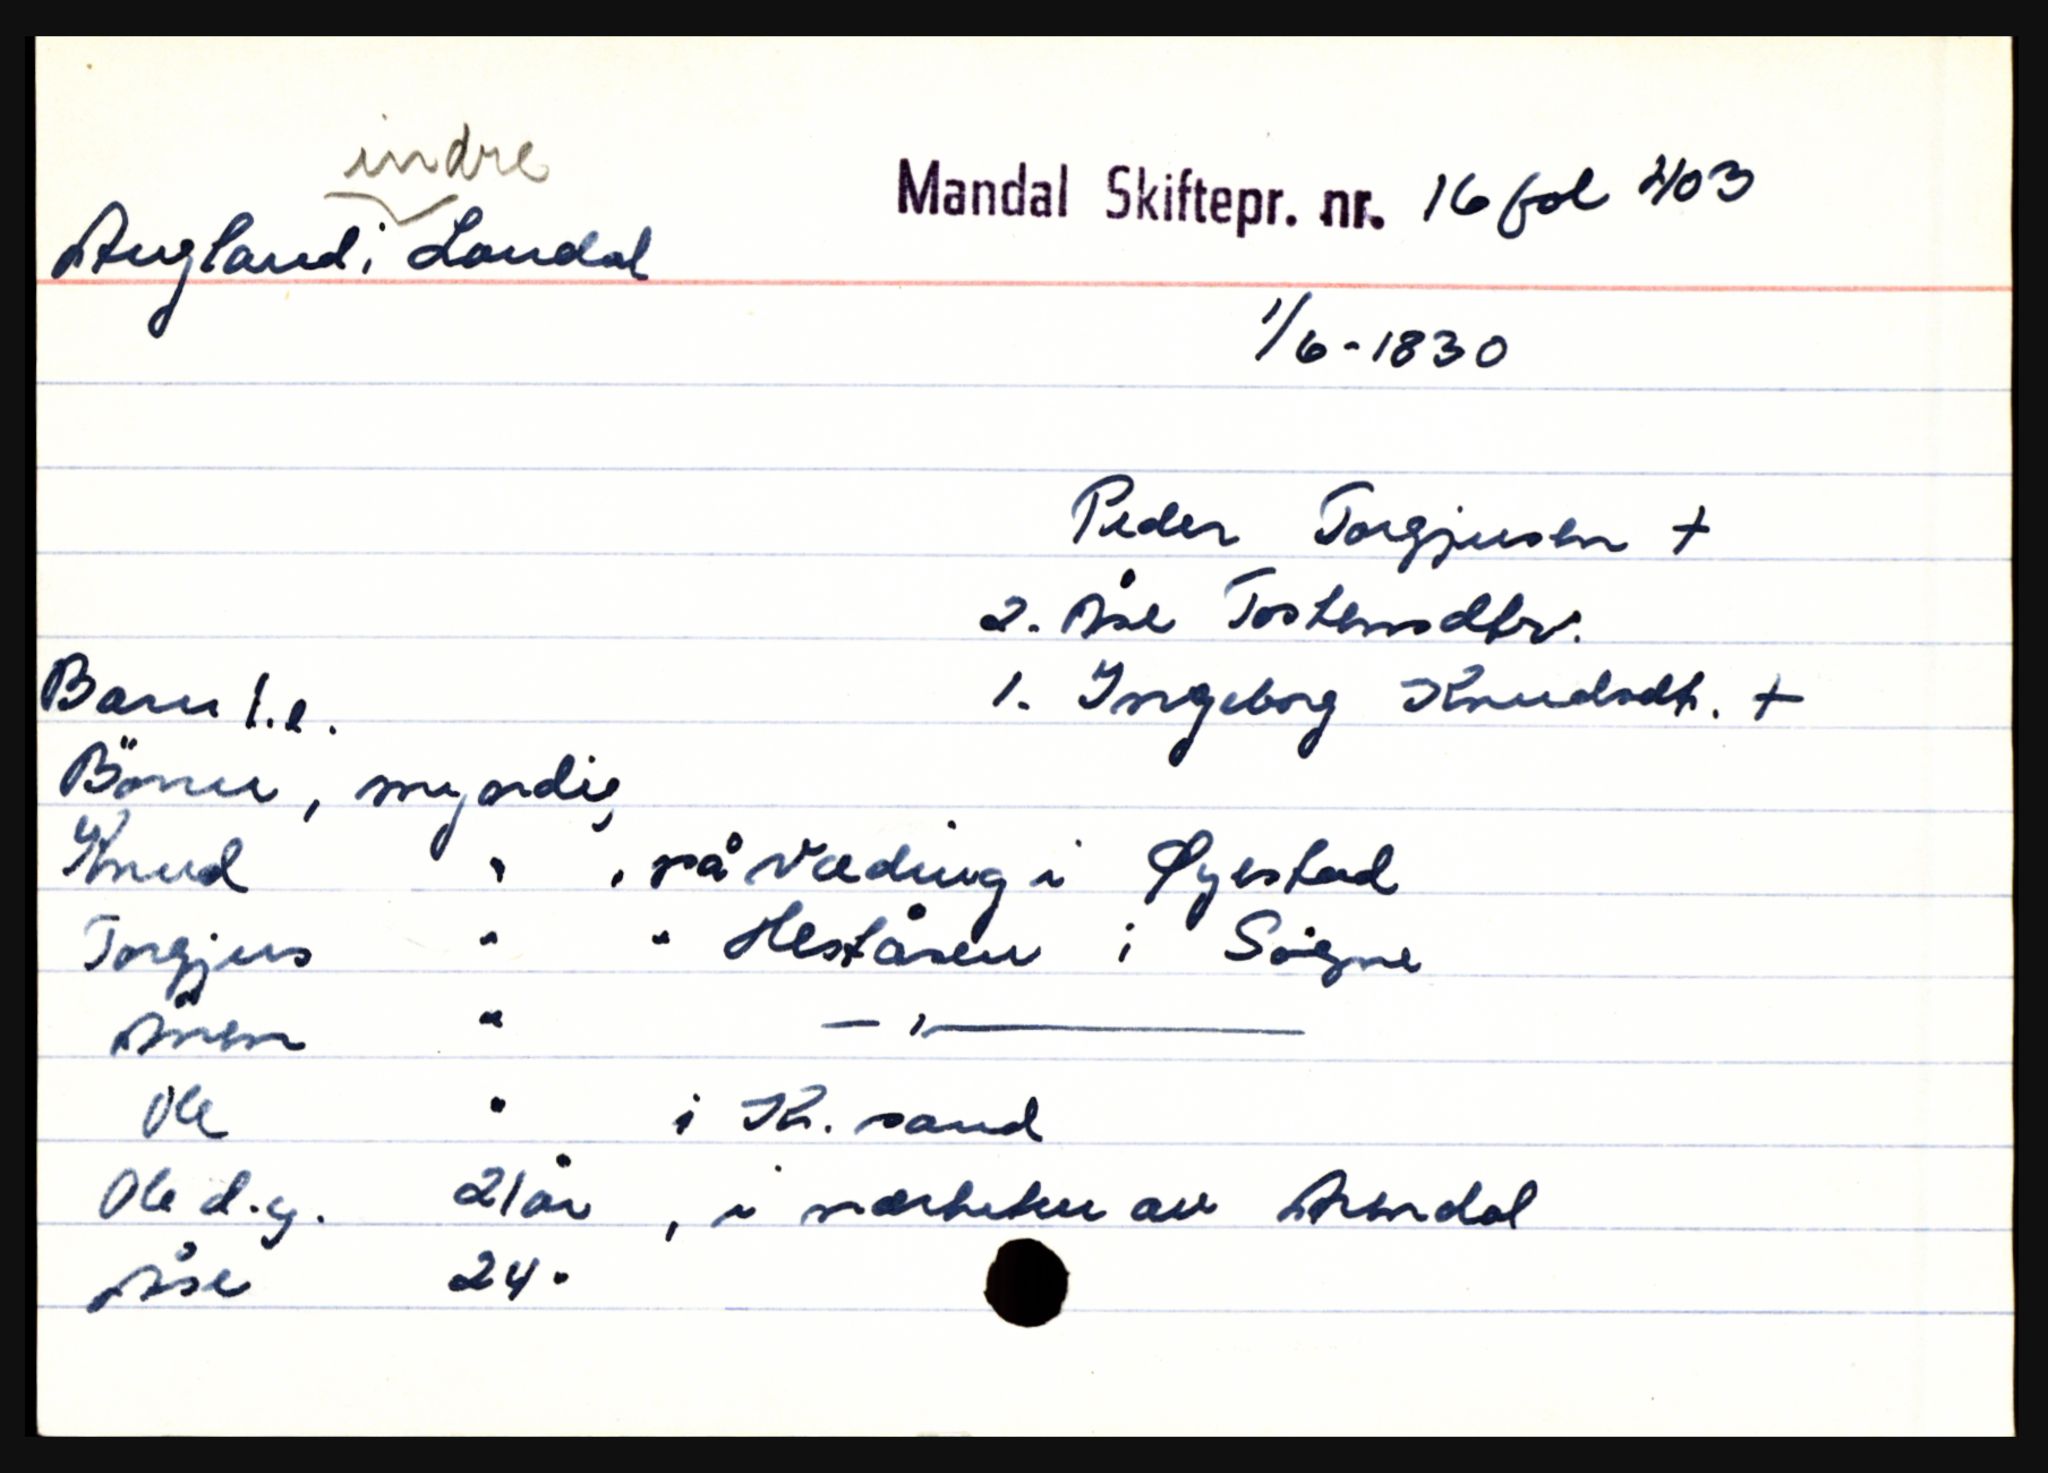 indre
Augland i Laudal
Mandal Skiftepr. nr. 16 fol 403
1/6-1830
Peder Torgjusen +
2. Åse Tostensdtr.
1. Ingeborg Knudsdt. +
Barn 1.e.
Börne, myndig
Knud " , på Væding i Øyestad
Torgjus " " Heståsen i Søgne
Ånen " — " —
Ole " i Kr.sand
Ole d.y. 21 år , i nærheten av Arendal
Åse 24 "